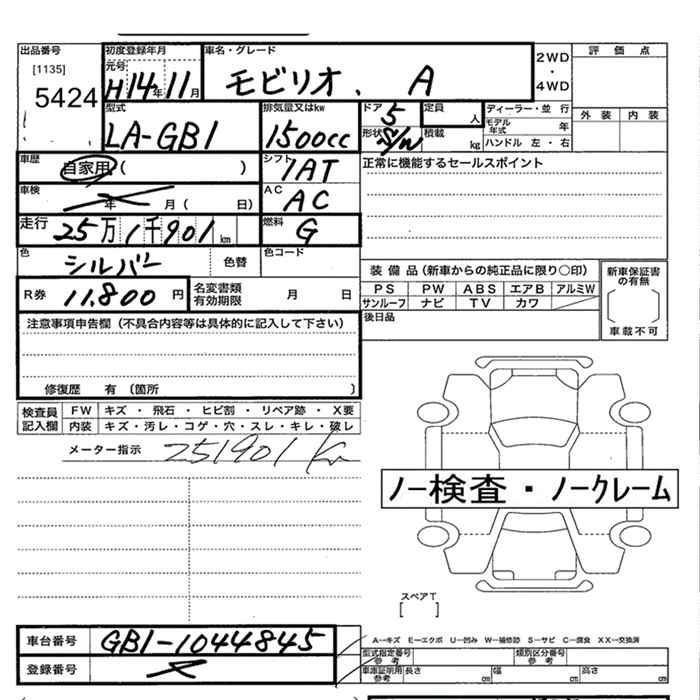 出品番号
[1135]
5424
初度登録年月
元号
H14年11月
車名・グレード
モビリオ . A
2WD
・
4WD
評価点
外装 内装
型式
LA-GB1
排気量又はkw
1500cc
ドア
5
形状
S/W
定員
人
積載
kg
ディーラー・並行
モデル年式 年
ハンドル 左・右
車歴
自家用 ( )
シフト
1AT
正常に機能するセールスポイント
車検
年 月 ( 日)
AC
AC
走行
25万1千901km
燃料
G
色
シルバー
色替
色コード
R券 11.800 円
名変書類有効期限 月 日
装備品(新車からの純正品に限り○印)
PS PW ABS エアB アルミW
サンルーフ ナビ TV カワ
新車保証書の有無
[ ]
車載不可
後日品
注意事項申告欄(不具合内容等は具体的に記入して下さい)
修復歴 有 (箇所 )
検査員記入欄
FW キズ・飛石・ヒビ割・リペア跡・X要
内装 キズ・汚レ・コゲ・穴・スレ・キレ・破レ
メーター指示 251901 Km
ノー検査・ノークレーム
スペアT
[ ]
車台番号 GB1-1044845
登録番号
A-キズ E-エクボ U-凹み W-補修跡 S-サビ C-腐食 XX-交換済
型式指定番号 参考
類別区分番号 参考
車庫証明用 参考 長さ cm 幅 cm 高さ cm